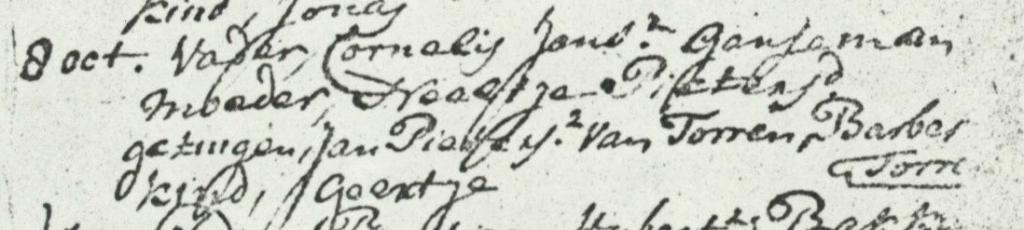 kind, Jonas
8 oct. Vader, Cornelis Jansz. Ganseman
Moeder, Neeltje Pieters
getuigen, Jan Pieters z. Van Torren, Barber
Torre
kind, Geertje